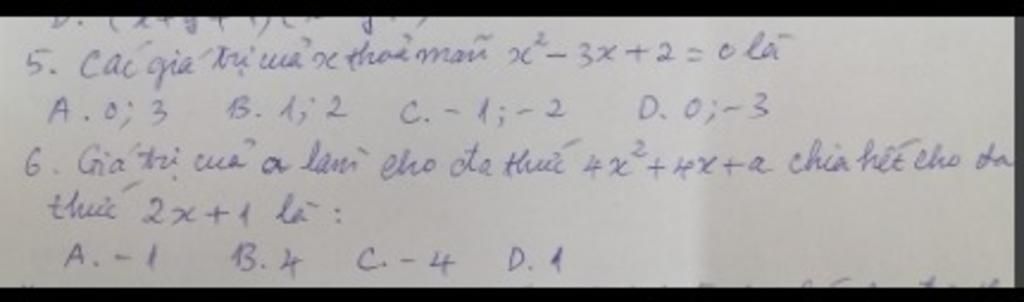 5. Các giá trị của x thoả mãn x² - 3x + 2 = 0 là
A. 0; 3 B. 1; 2 C. - 1; - 2 D. 0; - 3
6. Giá trị của a làm cho đa thức 4x² + 4x + a chia hết cho đa
thức 2x + 1 là :
A. - 1 B. 4 C. - 4 D. 1